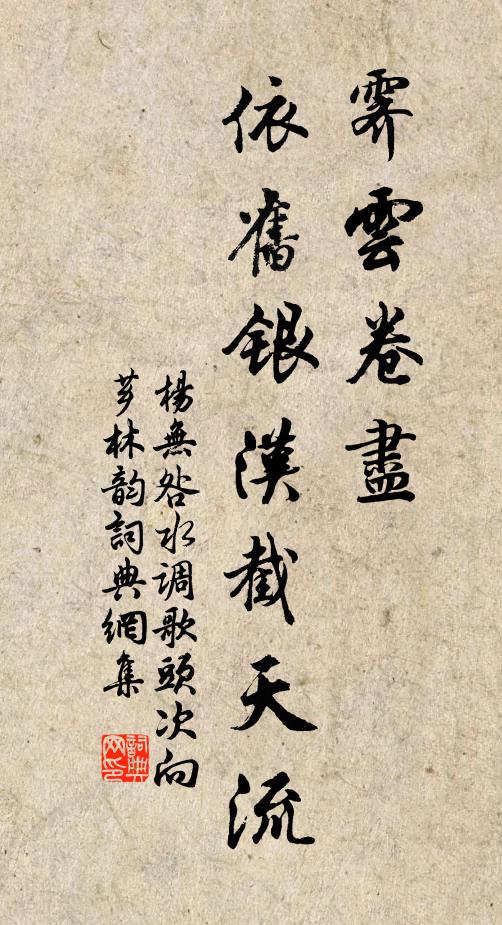 霽雲卷盡
依舊銀漢截天流
楊無咎水调歌頭次向
芗林韵詞典網集
詞典
网印